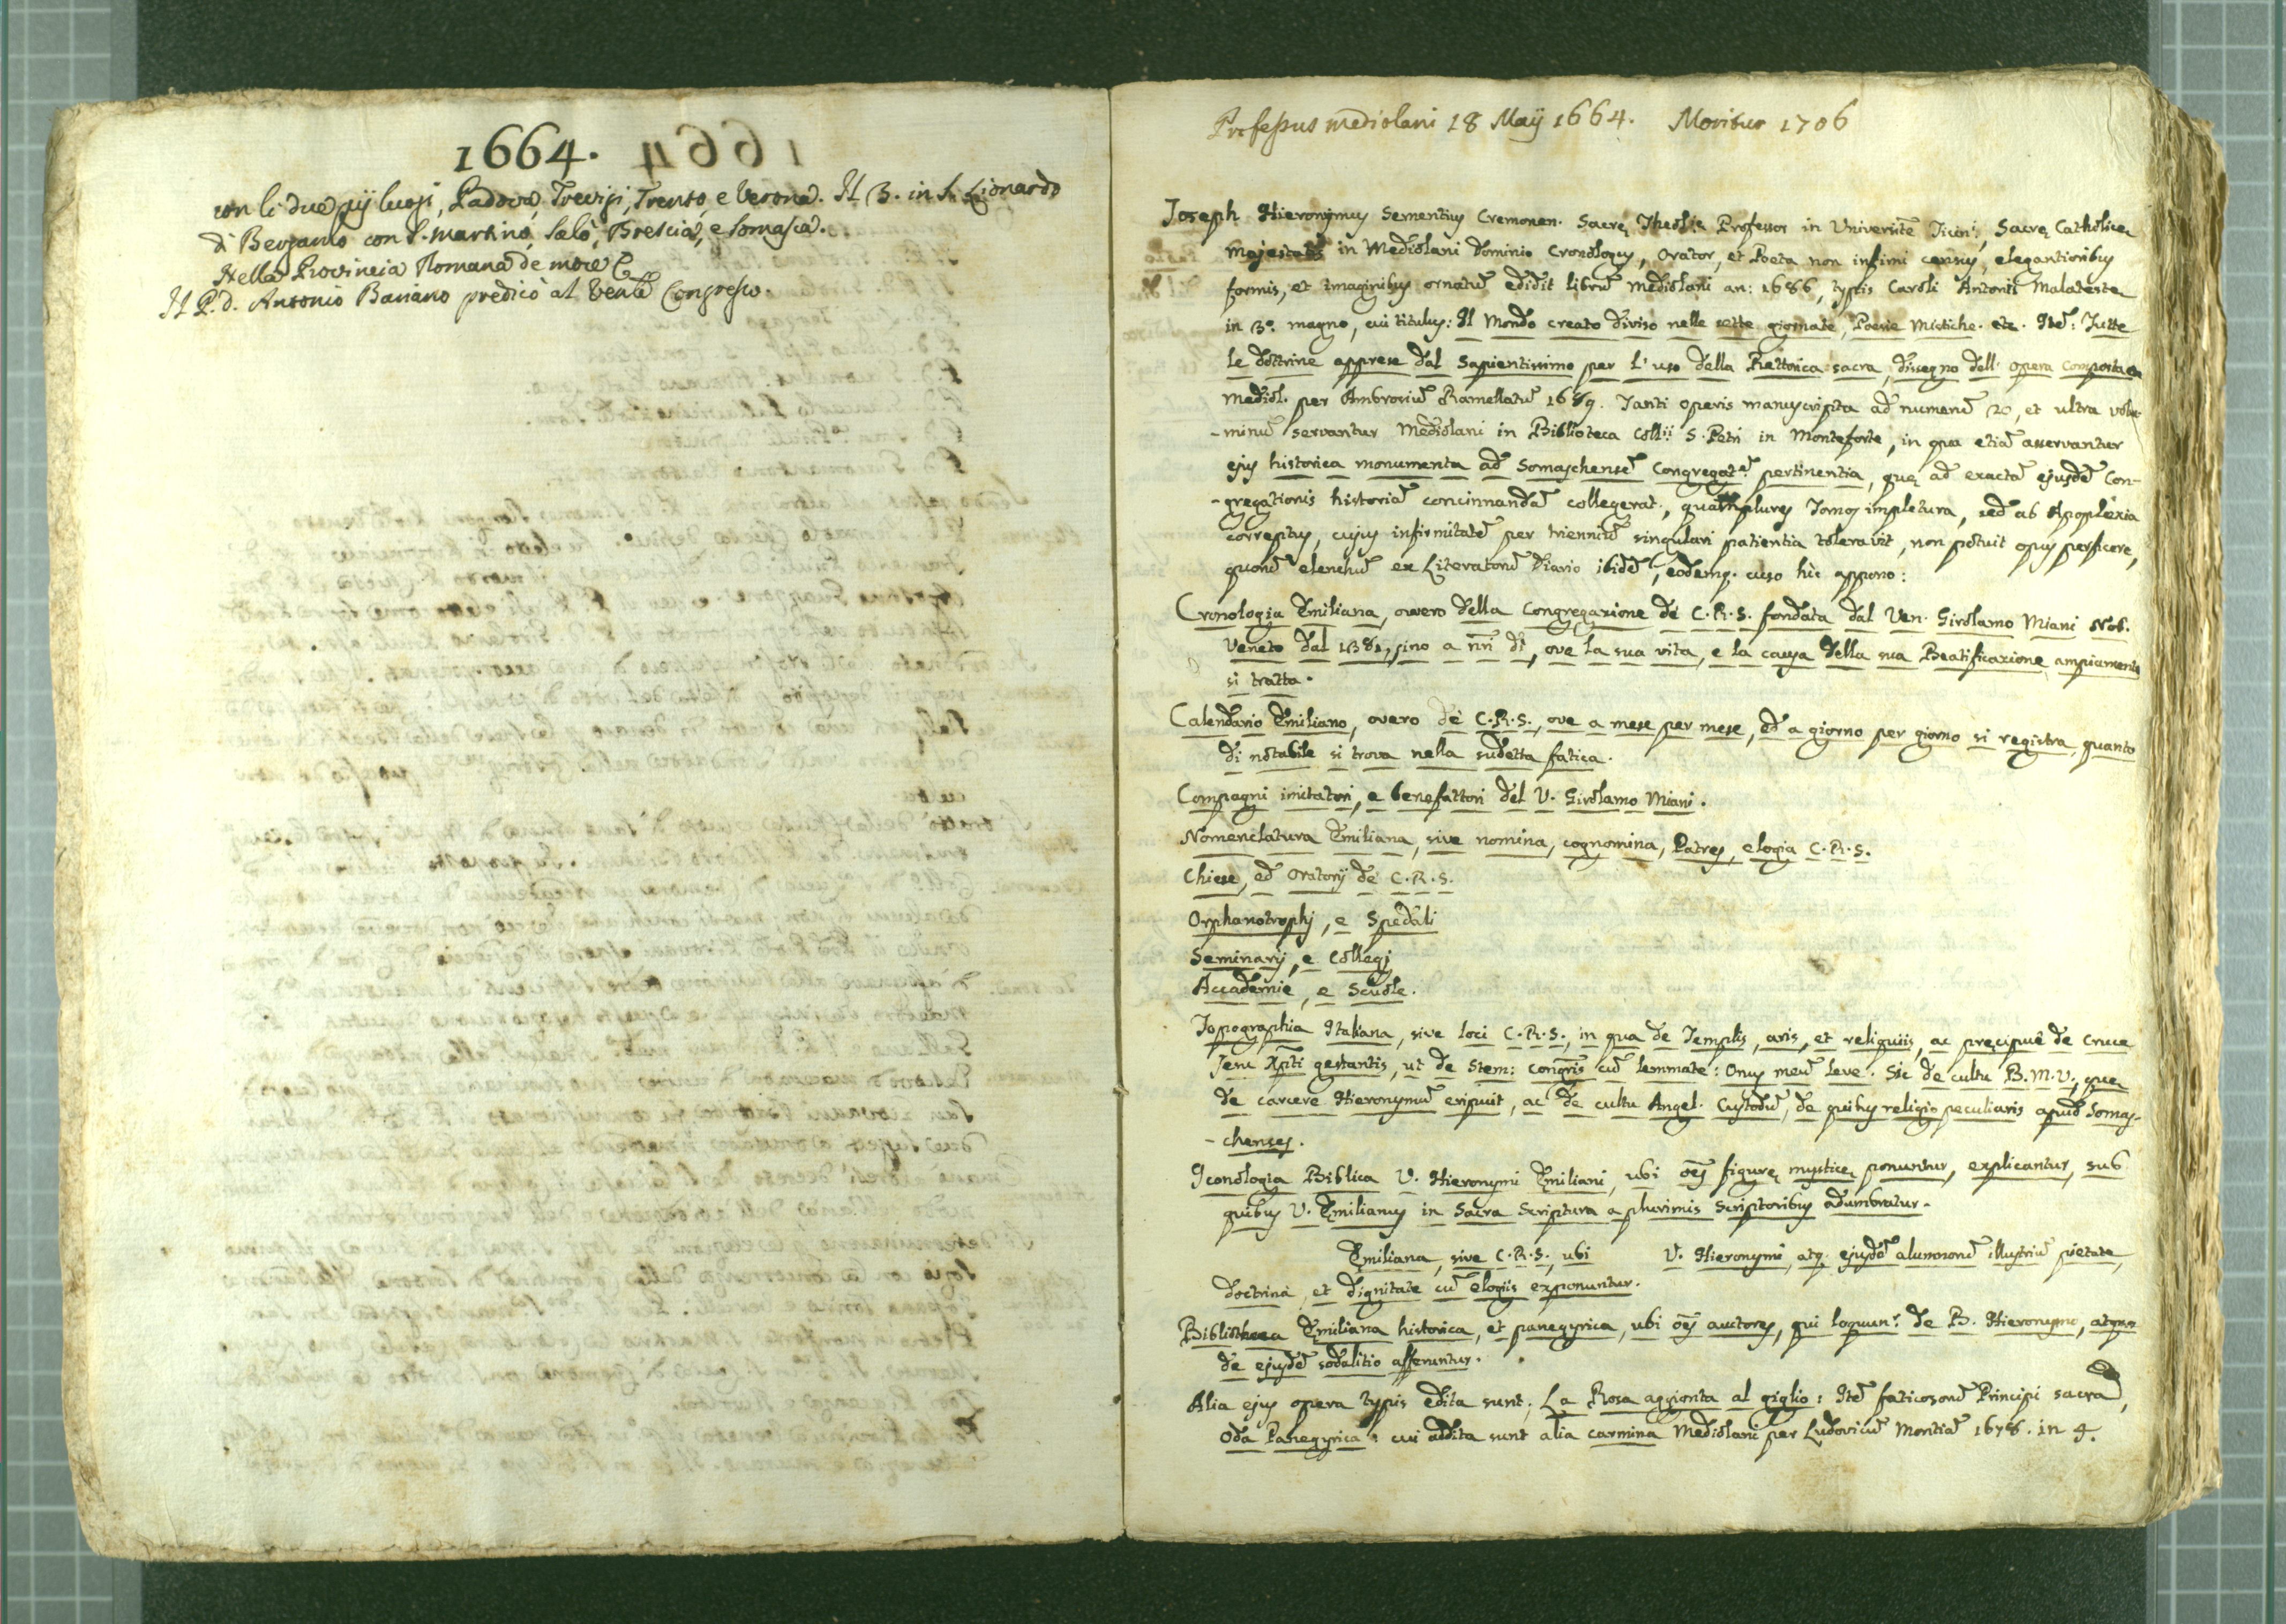 1664.
con li due pij luogi, Padova, Trevigi, Trento, e Verona. Il 3. in S. Lionardo
di Bergamo con S. Martino, Salò, Brescia, e Somasca.
Nella Provincia Romana de more
Il P. d. Antonio Baviano predicò al Vente Congresso.
Professus Mediolani 18 Maij 1664. Moritur 1706
Joseph Hieronymus Sementius Cremonen. Sacrę Theolię Professor in Universite Ticin:, Sacrę Catholicę
Majestatis in Mediolani Dominio Cronologus, Orator, et Poeta non infimi census, elegantioribus
formis, et imaginibus ornatū edidit librū Mediolani an: 1686, typis Caroli Antonii Malatestę
in 3º. magno, cui titulus: Il Mondo creato diviso nelle sette giornate, Poesie Mistiche. etc. Itē: Tutte
le dottrine apprese dal Sapientissimo per l'uso della Rettorica sacra, dissegno dell'opera composta
Mediol. per Ambrosiū Ramellatū 1689. Tanti operis manuscripta ad numerū 20, et ultra volu-
-minū servantur Mediolani in Biblioteca Collii S. Petri in Monteforte, in qua etiā asservantur
ejus historica monumenta ad Somaschensē Congregatē pertinentia, quę ad exactā ejusdē Con-
-gregationis historiā concinnandā collegerat, quamplures Tomos impletura, sed ab Apoplexia
correptus, cujus infirmitatē per trienniū singulari patientia toleravit, non potuit opus perficere,
quorū elenchū ex Literatorū Diario ibidē, eodemq. cuso hic appono:
Cronologia Emiliana, overo della Congregazione de C.R.S. fondata dal Ven. Girolamo Miani Nob.
Veneto dal 1381, sino a nri dì, ove la sua vita, e la causa della sua Beatificazione ampiamente
si tratta.
Calendario Emiliano, overo de C.R.S., ove a mese per mese, ed a giorno per giorno si registra quanto
di notabile si trova nella sudetta fatica.
Compagni imitatori, e benefattori del V. Girolamo Miani.
Nomenclatura Emiliana, sive nomina, cognomina, Patres, elogia C.R.S.
Chiese, ed Oratorij de C.R.S.
Orphanotrophj, e Spedali
Seminarij, e Collegj
Accademie, e Scuole.
Topographia Italiana, sive loci C.R.S., in qua de Templis, aris, et reliquiis, ac pręcipuê de Cruce
Jesu Xpti gestantis, ut de Stem: congris cū lemmate: Onus meū leve. Sic de cultu B.M.V., quę
de carcere Hieronymū eripuit, ac de cultu Angel. Custodū, de quibus religio peculiaris apud Somas-
-chenses.
Iconologia Biblica V. Hieronymi Emiliani, ubi oēs figurę mysticę ponuntur, explicantur, sub
quibus V. Emilianus in Sacra Scriptura a plurimis Scriptoribus adumbratur.
Emiliana, sive C.R.S., ubi V. Hieronymi, atq. ejusdē alumnorū illustriū pietate,
doctrina, et dignitate cū elogiis exponuntur.
Bibliotheca Emiliana historica, et panegyrica, ubi oēs auctores, qui loquun: de B. Hieronymo, atque
de ejusdē sodalitio afferuntur.
Alia ejus opera typis edita sunt, La Rosa aggionta al giglio: Itē faticosorū Principi sacra,
Oda Panegyrica: cui addita sunt alia carmina Mediolani per Ludovicū Montiā 1678. in 4.